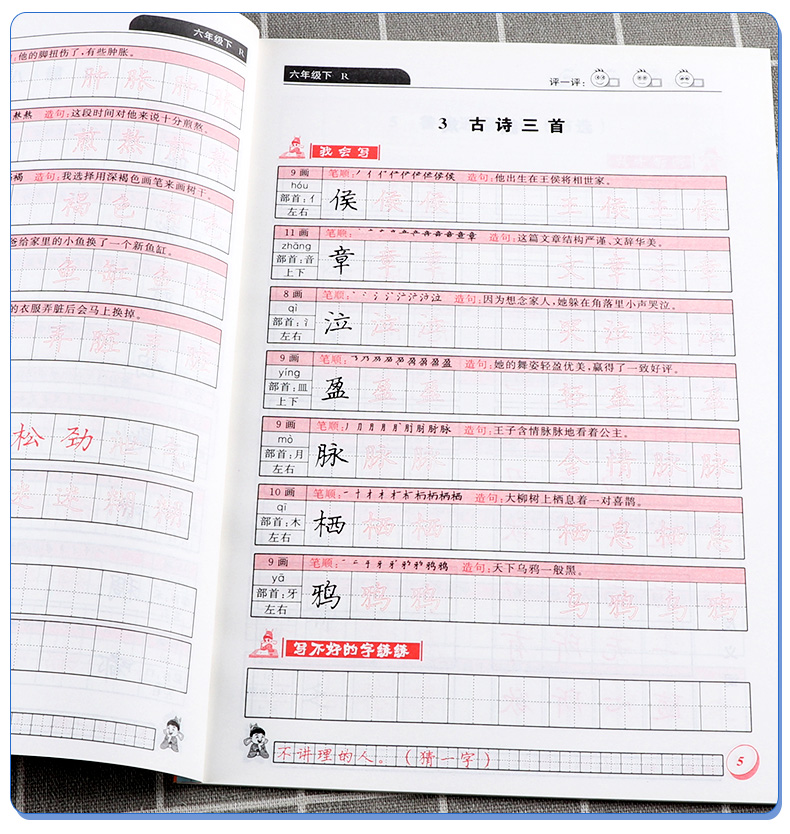 六年级下 R
他的脚扭伤了，有些肿胀。
肿 胀 肿 胀
熬熬 造句：这段时间对他来说十分煎熬。
熬 熬 熬
褐 造句：我选择用深褐色画笔来画树干。
褐 色
爸给家里的小鱼换了一个新鱼缸。
鱼 缸 鱼 缸
的衣服弄脏后会马上换掉。
弄 脏 弄 脏
松 劲
六年级下 R
评一评：
3 古诗三首
我会写
9画 笔顺： 造句：他出生在王侯将相世家。
hóu
部首：亻
左右
侯 侯 侯 王 侯 侯
11画 笔顺： 造句：这篇文章结构严谨，文辞华美。
zhāng
部首：音
上下
章 章 章 文 章 章
8画 笔顺： 造句：因为想念家人，她躲在角落里小声哭泣。
qì
部首：氵
左右
泣 泣 泣 哭 泣 泣
9画 笔顺： 造句：她的舞姿轻盈优美，赢得了一致好评。
yíng
部首：皿
上下
盈 盈 盈 轻 盈 轻 盈
9画 笔顺： 造句：王子含情脉脉地看着公主。
mò
部首：月
左右
脉 脉 脉 含 情 脉 脉
10画 笔顺： 造句：大柳树上栖息着一对喜鹊。
qī
部首：木
左右
栖 栖 栖 栖 息 栖 息
9画 笔顺： 造句：天下乌鸦一般黑。
yā
部首：牙
左右
鸦 鸦 鸦 乌 鸦 乌 鸦
写不好的字练练
不讲理的人。（猜一字）
5